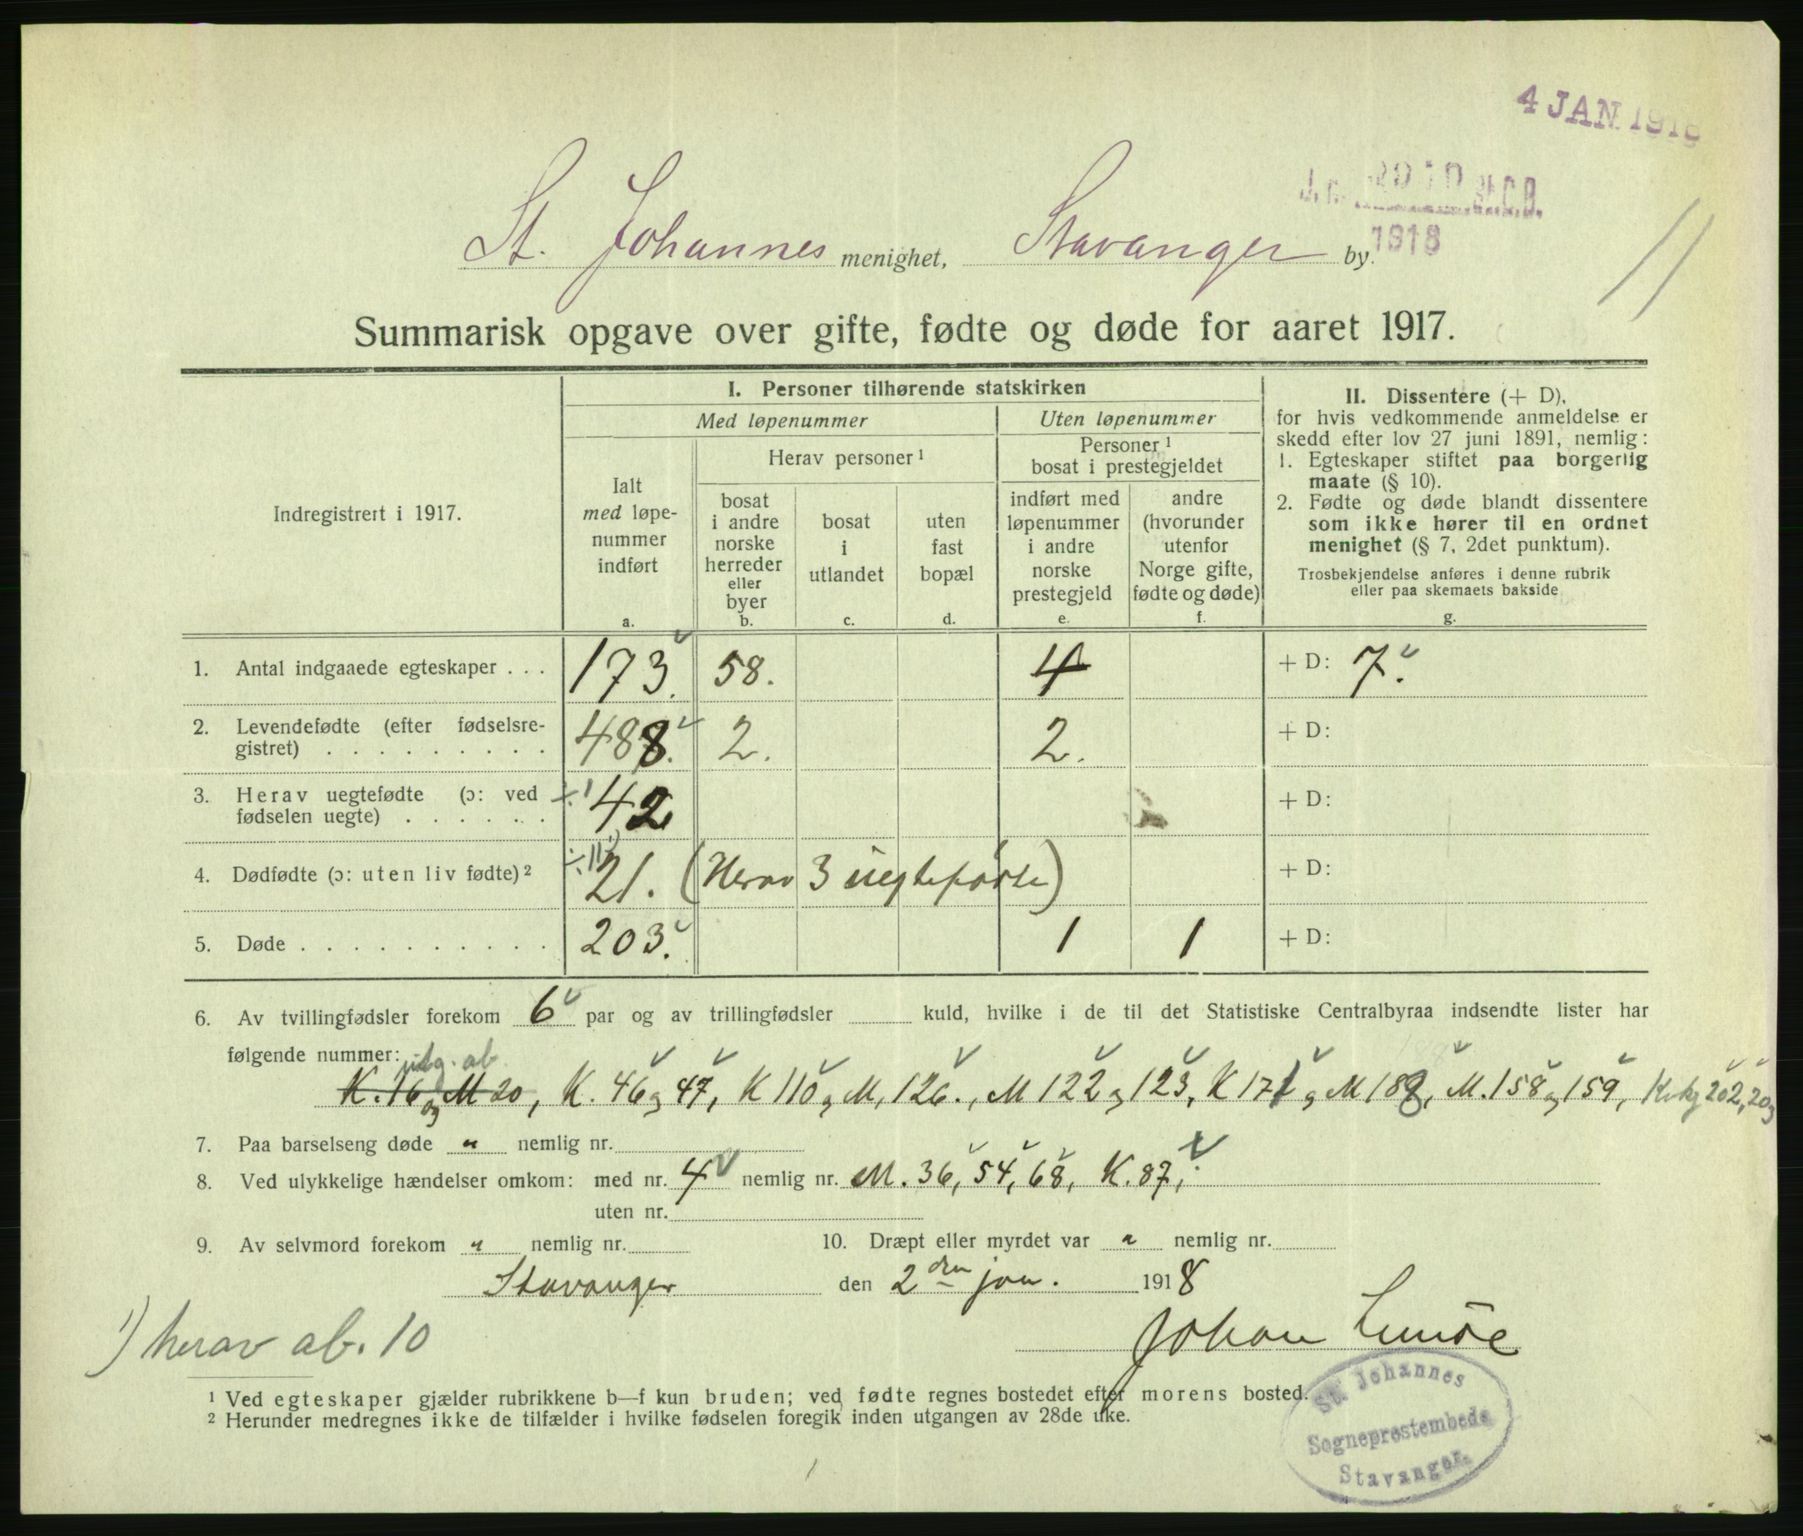 4 JAN 1918
J.n. St.C.B.
1918
11
St. Johannes menighet, Stavanger by.
Summarisk opgave over gifte, fødte og døde for aaret 1917.
Indregistrert i 1917.
I. Personer tilhørende statskirken
Med løpenummer
Uten løpenummer
Ialt
med løpe-
nummer
indført
a.
Herav personer 1
bosat
i andre
norske
herreder
eller
byer
b.
bosat
i
utlandet
c.
uten
fast
bopæl
d.
Personer 1
bosat i prestegjeldet
indført med
løpenummer
i andre
norske
prestegjeld
e.
andre
(hvorunder
utenfor
Norge gifte,
fødte og døde)
f.
II. Dissentere (+ D),
for hvis vedkommende anmeldelse er
skedd efter lov 27 juni 1891, nemlig:
1. Egteskaper stiftet paa borgerlig
maate (§ 10).
2. Fødte og døde blandt dissentere
som ikke hører til en ordnet
menighet (§ 7, 2det punktum).
Trosbekjendelse anføres i denne rubrik
eller paa skemaets bakside
g.
1. Antal indgaaede egteskaper . . . 173. 58. 4 + D: 7.
2. Levendefødte (efter fødselsre-
gistret) . . . . . . . . . 488. 2. 2. + D:
3. Herav uegtefødte (ɔ: ved
fødselen uegte) . . . . . . ÷ 1 42 + D:
4. Dødfødte (ɔ: uten liv fødte) 2 ÷ 1) 21. (Herav 3 uegtefødte) + D:
5. Døde . . . . . . . . . . 203. 1 1 + D:
6. Av tvillingfødsler forekom 6 par og av trillingfødsler kuld, hvilke i de til det Statistiske Centralbyraa indsendte lister har
følgende nummer: utg. ab.
K. 16 og M 20, K. 46 og 47, K 110 og M. 126., M 122 og 123, K 171 og M 188, M. 158 og 159, K 202, 203
7. Paa barselseng døde " nemlig nr.
8. Ved ulykkelige hændelser omkom: med nr. 4 nemlig nr. M. 36, 54, 68, K. 87,
uten nr.
9. Av selvmord forekom " nemlig nr. 10. Dræpt eller myrdet var " nemlig nr.
Stavanger den 2den jan. 1918
1) herav ab. 10
Johan Lunöe
1 Ved egteskaper gjælder rubrikkene b—f kun bruden; ved fødte regnes bostedet efter morens bosted.
2 Herunder medregnes ikke de tilfælder i hvilke fødselen foregik inden utgangen av 28de uke.
St. Johannes
Sogneprestembede
Stavanger.